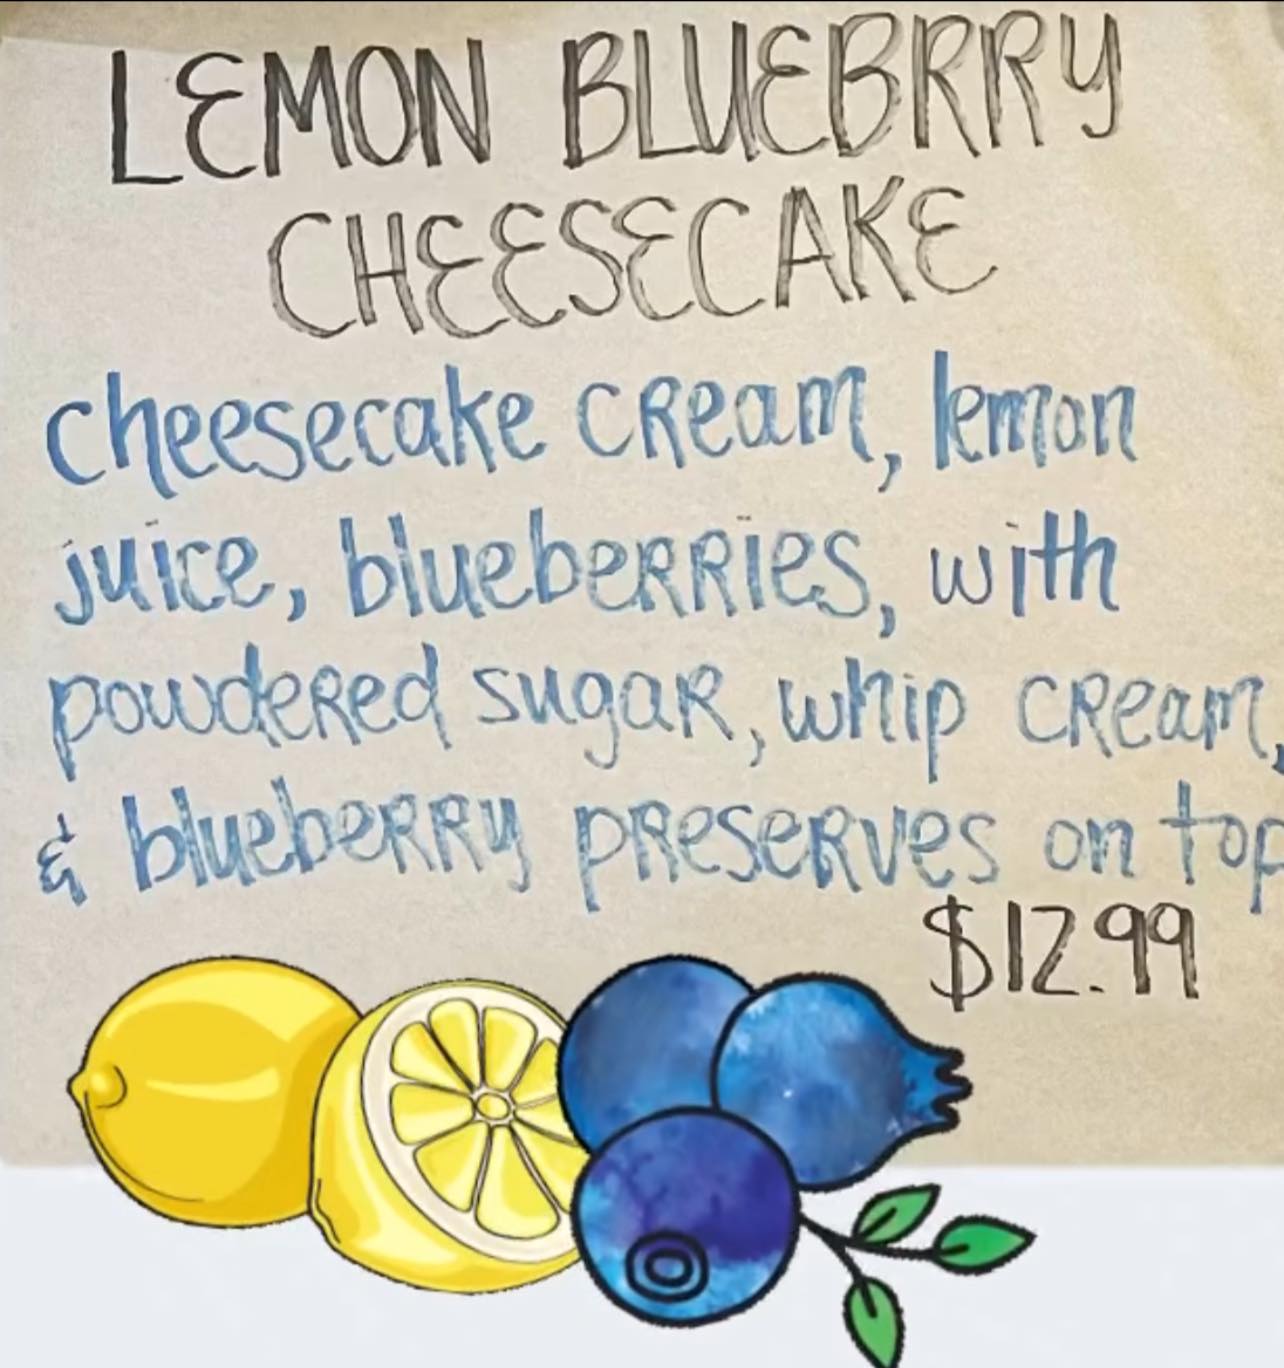 LEMON BLUEBRRY
CHEESECAKE
cheesecake cream, lemon
juice, blueberries, with
powdered sugar, whip cream,
& blueberry preserves on top
$12.99